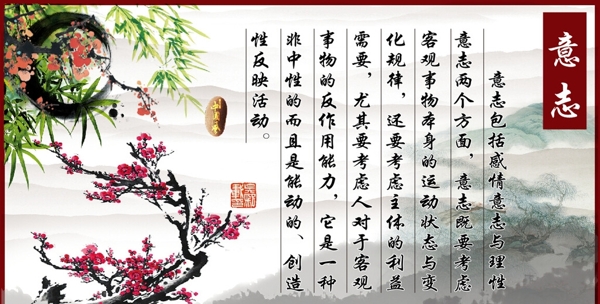 意志
意志包括感情意志与理性
意志两个方面，意志既要考虑
客观事物本身的运动状态与变
化规律，还要考虑主体的利益
需要，尤其要考虑人对于客观
事物的反作用能力，它是一种
非中性的而且是能动的、创造
性反映活动。